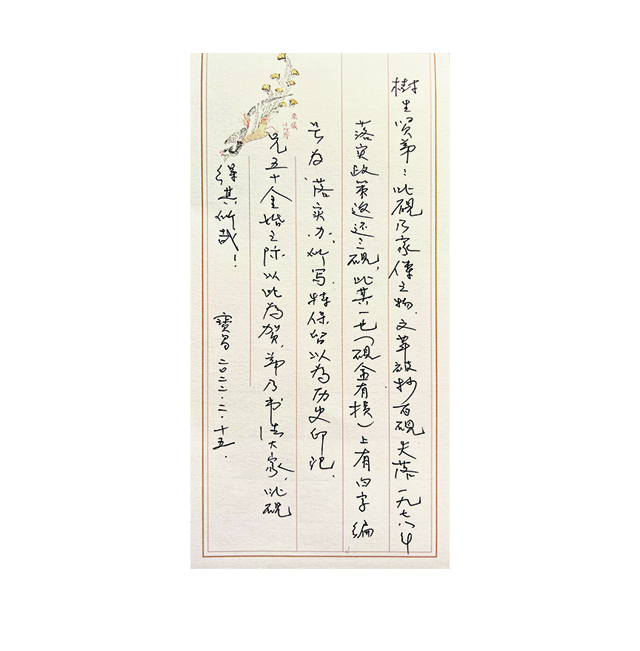 樹生賢弟：此硯乃家傳之物.文革被抄百硯失落一九七八年
落实政策返还三硯,此其一也(硯盒有損)上有白字编
号为.落实办.所写.特保留以为历史印记.
兄五十金婚之际以此为贺.弟乃书法大家,此硯
得其所哉!
寶昌二〇二二.二.十五.